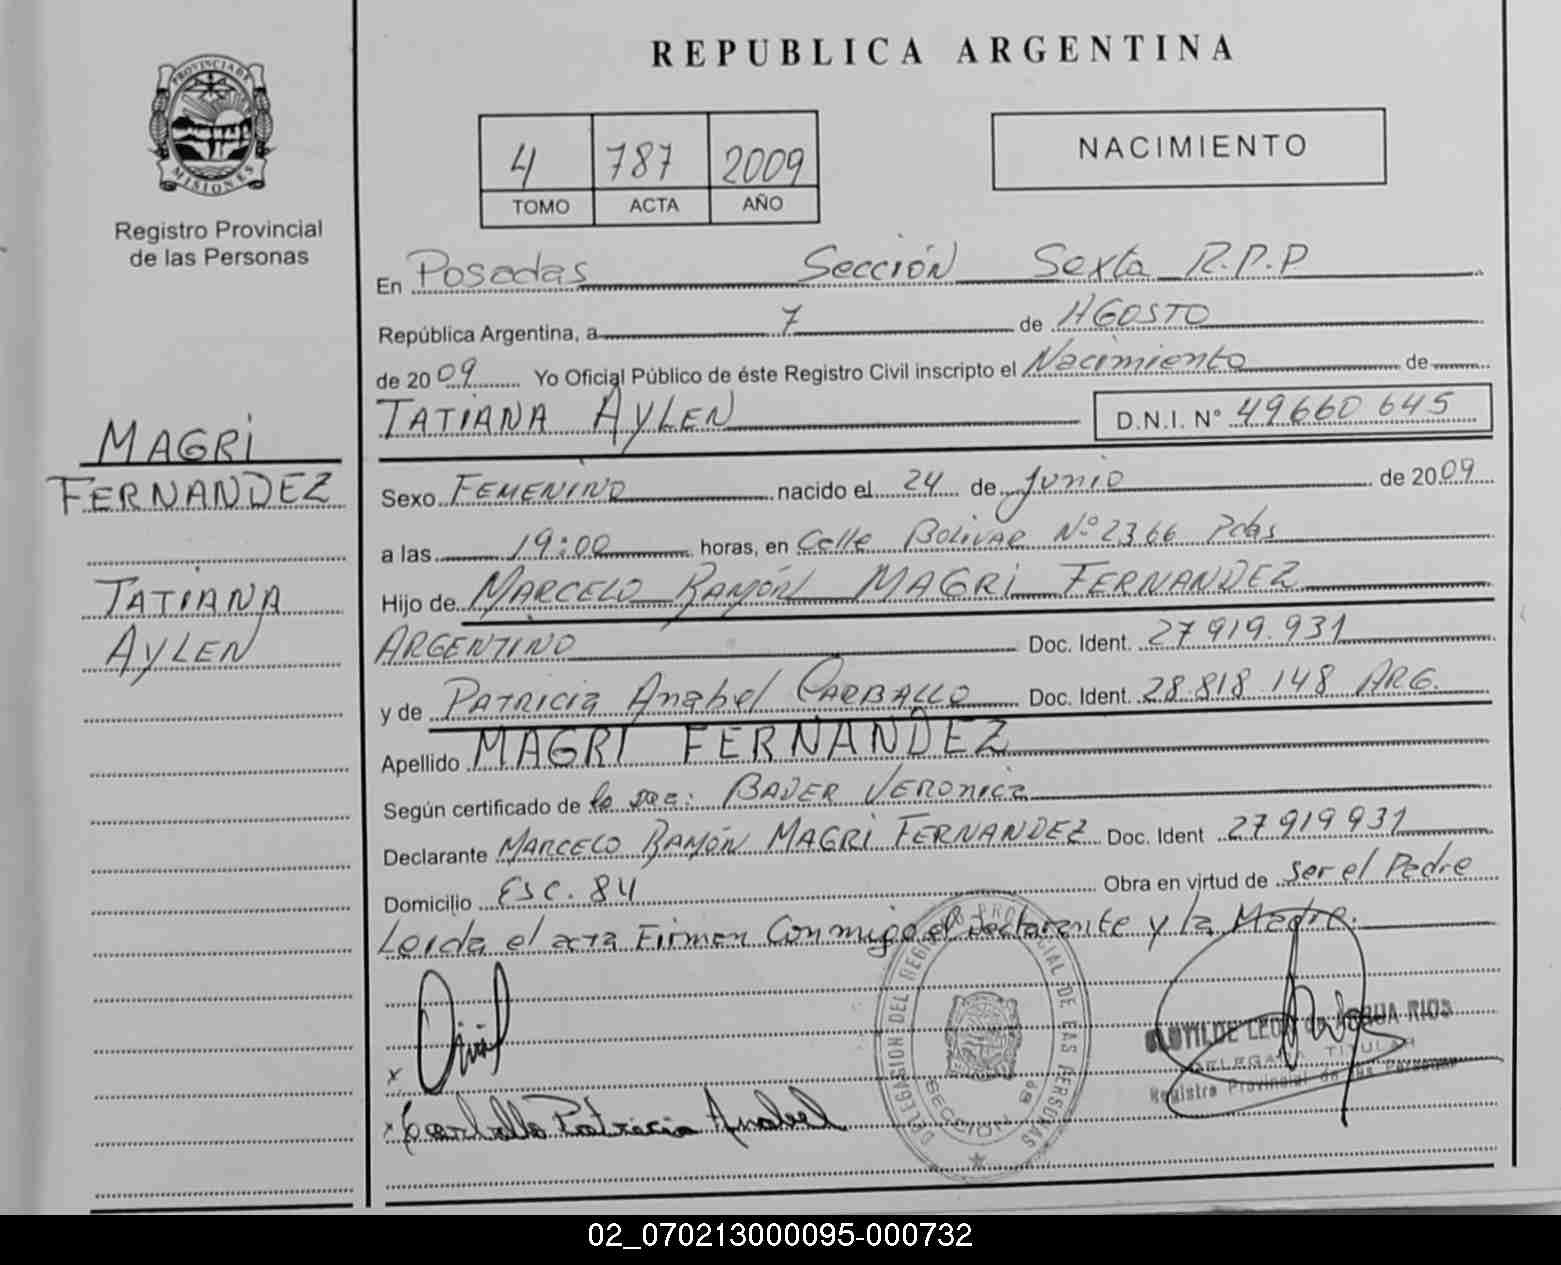 PROVINCIA DE
MISIONES
Registro Provincial
de las Personas
MAGRI
FERNANDEZ
TATIANA
AYLEN
REPUBLICA ARGENTINA
4 787 2009
TOMO ACTA AÑO
NACIMIENTO
En Posadas Sección Sexta R.P.P
República Argentina, a 7 de AGOSTO
de 2009 Yo Oficial Público de éste Registro Civil inscripto el Nacimiento de
TATIANA AYLEN D.N.I. Nº 49660 645
Sexo FEMENINO nacido el 24 de Junio de 2009
a las 19:00 horas, en Calle BOLIVAR Nº 2366 Pdas
Hijo de MARCELO RAMÓN MAGRI FERNANDEZ
ARGENTINO Doc. Ident. 27 919.931
y de PATRICIA Anabel CARBALLO Doc. Ident. 28.818.148 ARG.
Apellido MAGRI FERNANDEZ
Según certificado de la Dra: BADER VERONICA
Declarante MARCELO RAMÓN MAGRI FERNANDEZ Doc. Ident 27 919 931
Domicilio ESC. 84 Obra en virtud de ser el Padre
Leida el acta Firman Conmigo el declarante y la Madre.
DELEGACION DEL REGISTRO PROVINCIAL DE LAS PERSONAS
SECCION 6ª
CLOTILDE LEON de RIOS
DELEGADA TITULAR
Registro Provincial de las Personas
x
x Carballo Patricia Anabel
02_070213000095-000732